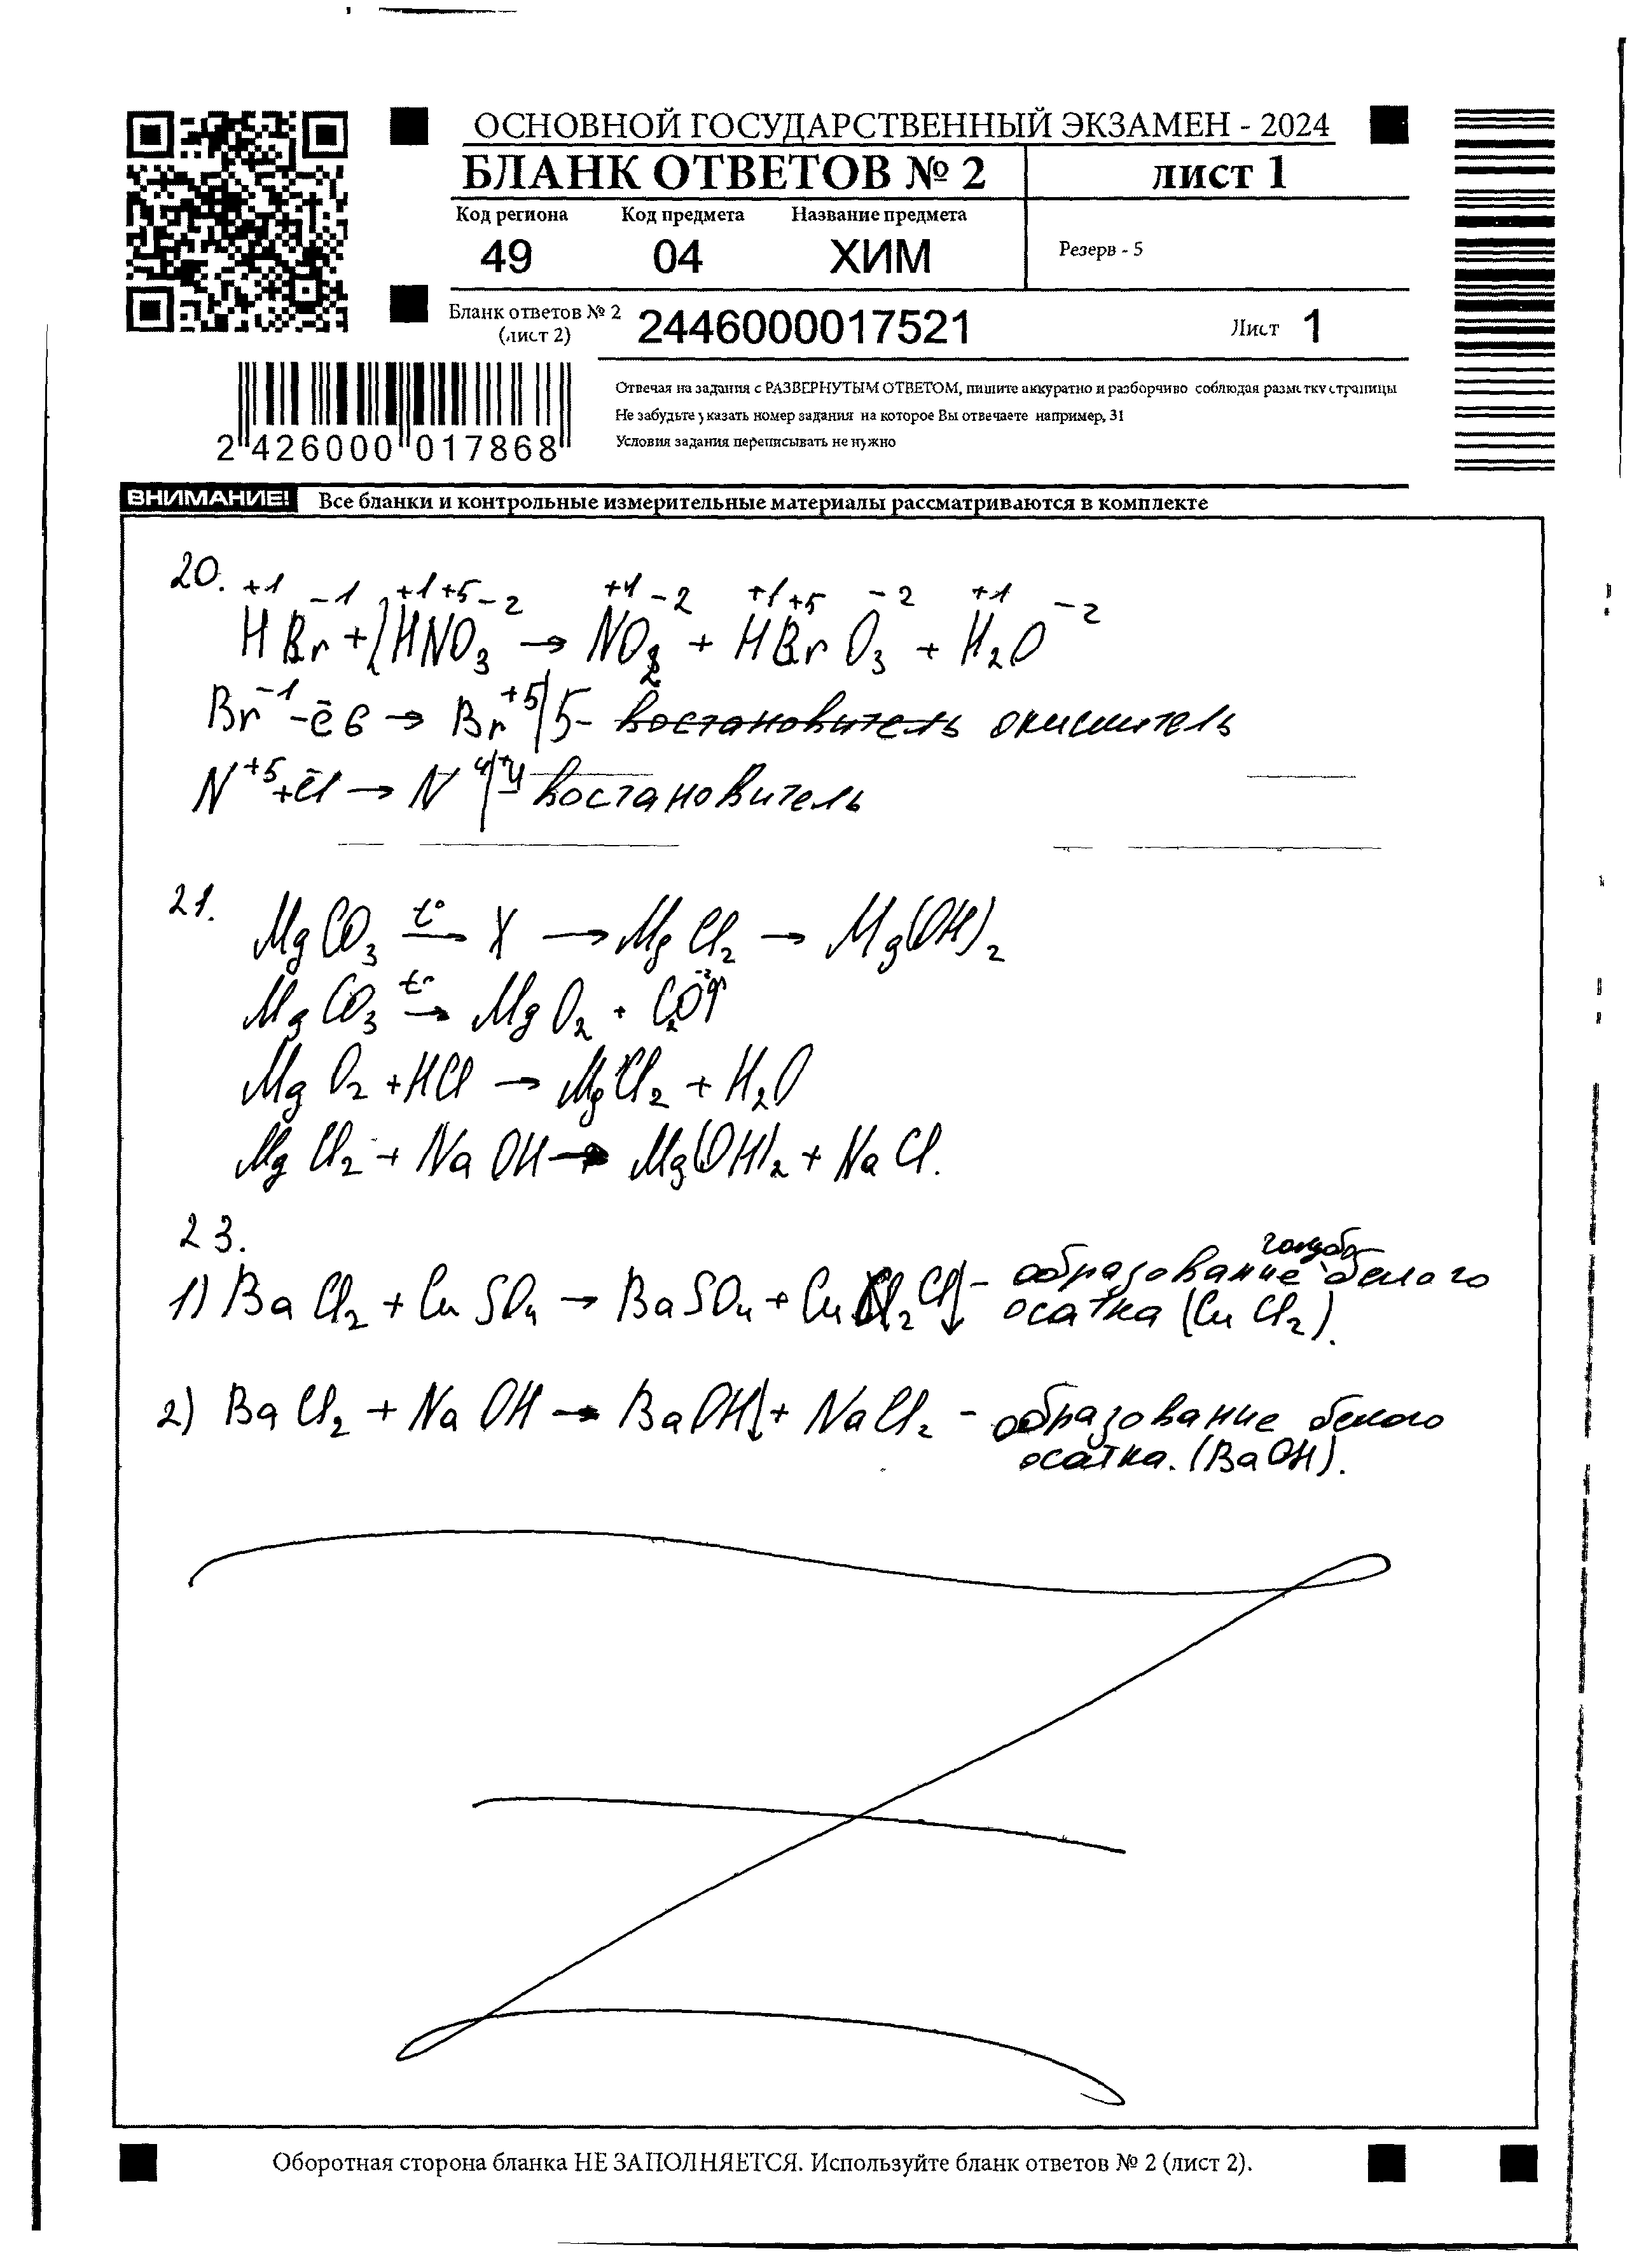 ОСНОВНОЙ ГОСУДАРСТВЕННЫЙ ЭКЗАМЕН - 2024
БЛАНК ОТВЕТОВ № 2 лист 1
Код региона Код предмета Название предмета
49 04 ХИМ Резерв - 5
Бланк ответов № 2 (лист 2) 2446000017521 Лист 1
Отвечая на задания с РАЗВЕРНУТЫМ ОТВЕТОМ, пишите аккуратно и разборчиво соблюдая разметку страницы
Не забудьте указать номер задания на которое Вы отвечаете например, 31
Условия задания переписывать не нужно
2 426000 017868
ВНИМАНИЕ! Все бланки и контрольные измерительные материалы рассматриваются в комплекте
20.
+1 -1 +1 +5 -2 +4 -2 +1 +5 -2 +1 -2
HBr + HNO3 → NO2 + HBrO3 + H2O
Br-1 -ē6 → Br+5 | 5- востановитель окислитель
N+5 +ē1 → N+4 | - востановитель
21. MgCO3 t° → X → MgCl2 → Mg(OH)2
MgCO3 t° → MgO2 + CO2↑
MgO2 + HCl → MgCl2 + H2O
MgCl2 + NaOH → Mg(OH)2 + NaCl.
23.
1) BaCl2 + CuSO4 → BaSO4 + CuCl2↓ - образование голубо белого
осатка (CuCl2).
2) BaCl2 + NaOH → BaOH↓ + NaCl2 - образование белого
осатка. (BaOH).
Оборотная сторона бланка НЕ ЗАПОЛНЯЕТСЯ. Используйте бланк ответов № 2 (лист 2).